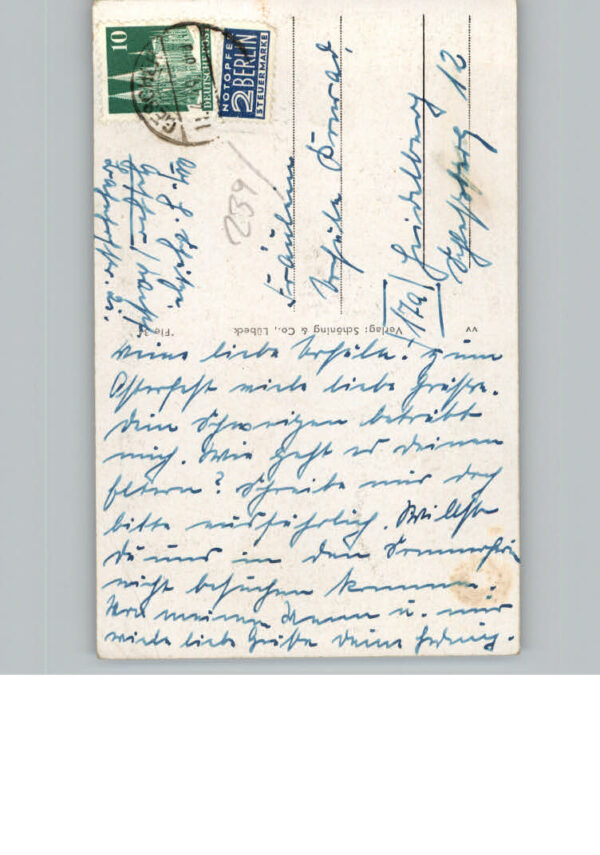 10
DEUTSCHE POST
NOTOPFER
2 BERLIN
STEUERMARKE
239/
Fräulein
Ursula Konrad
(17a) Heidelberg
Schloßberg 12
Verlag: Schöning & Co., Lübeck
vv
Meine liebe Ursula! Zum
Osterfest viele liebe Grüße.
Dein Schweigen betrübt
mich. Wie geht es deinen
Eltern? Schreibe mir doch
bitte ausführlich. Willst
Du uns in den Sommerferien
nicht besuchen kommen?
Von meinem Mann u. mir
viele liebe Grüße Deine Hedwig.